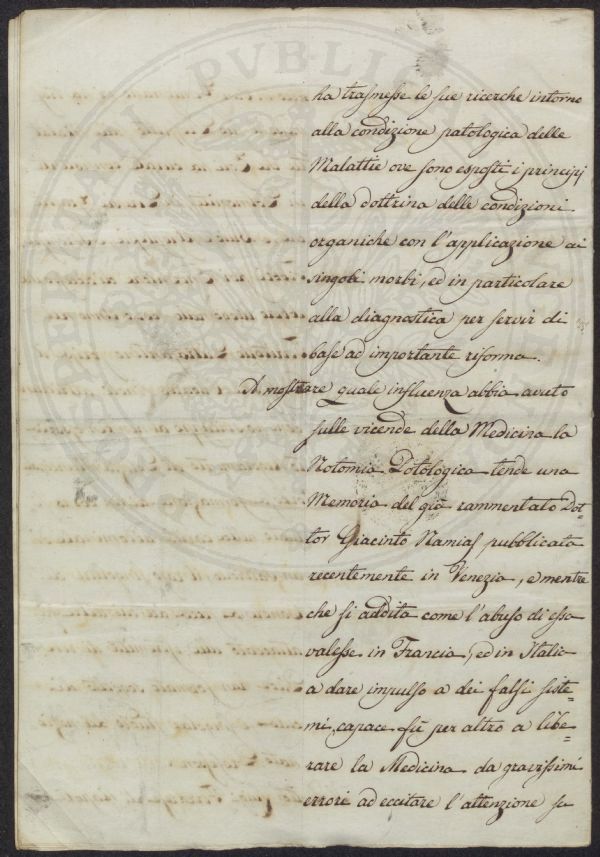 ha trasmesse le sue ricerche intorno
alla condizione patologica delle
Malattie ove sono esposti i principj
della dottrina delle condizioni
organiche con l'applicazione ai
singoli morbi, ed in particolare
alla diagnostica per servir di
base ad importante riforma.
A mostrare quale influenza abbia avuto
sulle vicende della Medicina la
Notomia Patologica tende una
Memoria del già rammentato Dot=
tor Giacinto Namias pubblicata
recentemente in Venezia, e mentre
che si addita come l'abuso di essa
valesse in Francia, ed in Italia
a dare impulso a dei falsi siste=
mi, capace fù per altro a libe=
rare la Medicina da gravissimi
errori ad eccitare l'attenzione su
PVBLI